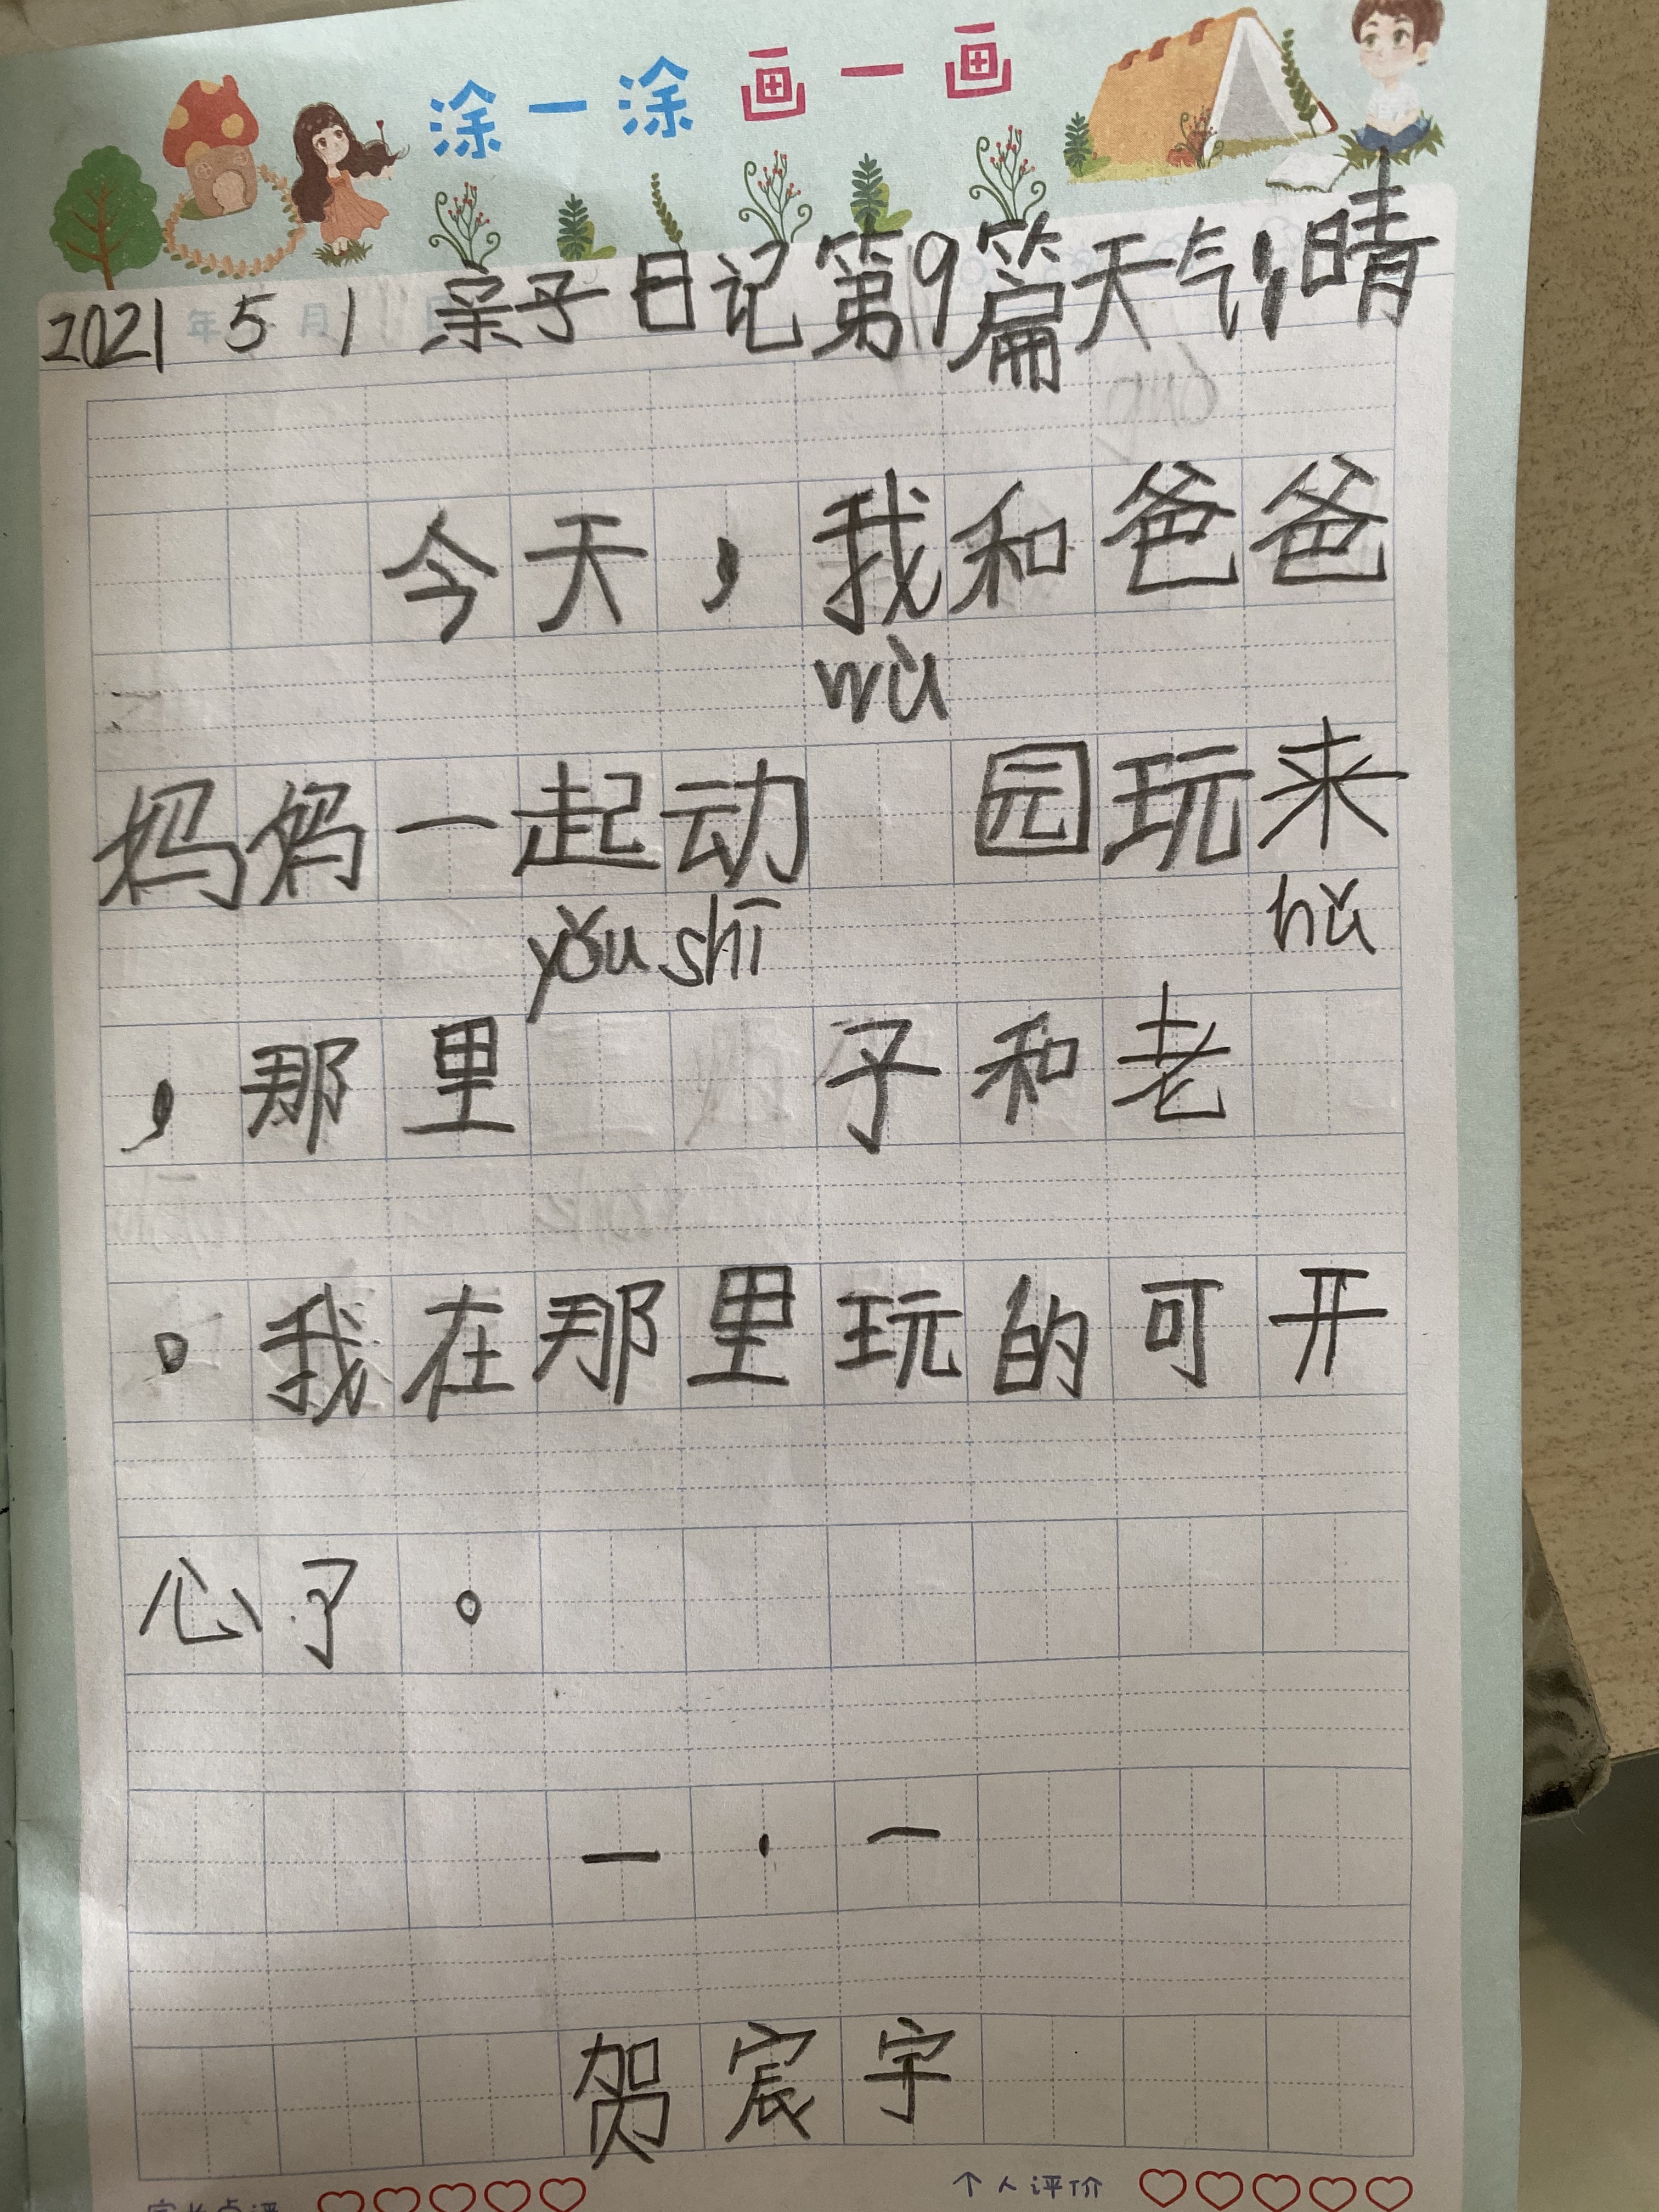 涂一涂画一画
2021年5月1 亲子日记第9篇天气:晴
今天，我和爸爸
wù
妈妈一起动 园玩来
yǒu shī hǔ
，那里 子和老
。我在那里玩的可开
心了。
一·一
贺宸宇
个人评价